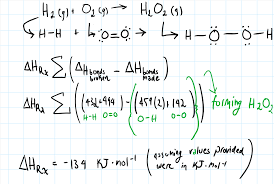 H₂(g) + O₂(g) → H₂O₂(g)
H-H + O=O → H-O-O-H
ΔH Rx Σ (ΔH bonds broken - ΔH bonds made)
ΔH Rx Σ ((432+494) - (459(2)+142)) forming H₂O₂
H-H O=O O-H O-O
ΔH Rx = -134 KJ·mol⁻¹ (assuming values provided were in KJ·mol⁻¹)